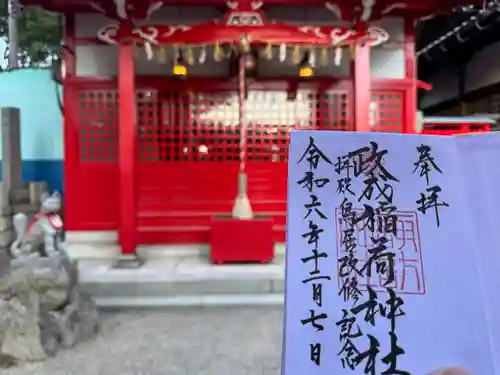 奉拝
政成稲荷神社
拝殿鳥居改修記念
令和六年十二月七日